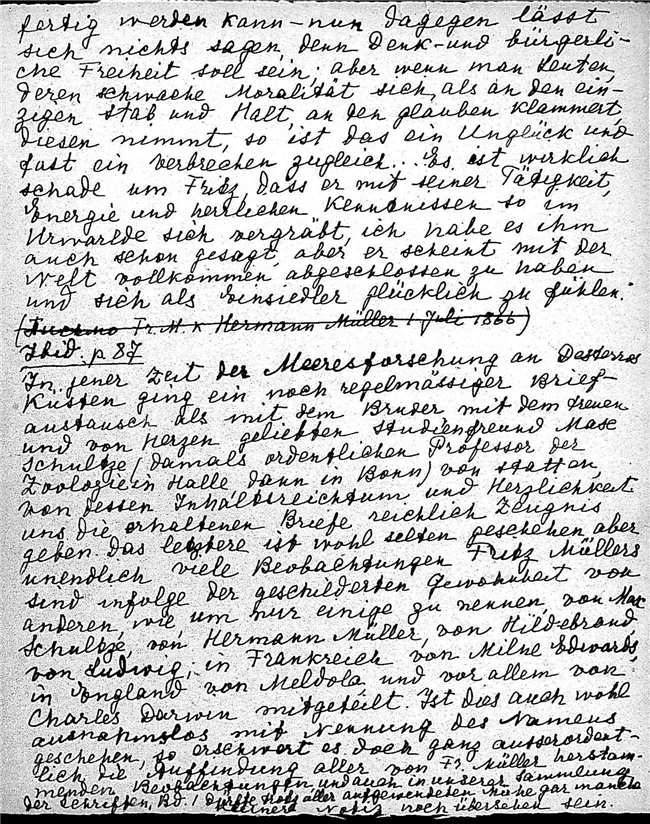 fertig werden kann – nun dagegen lässt
sich nichts sagen, denn Denk- und bürgerli-
che Freiheit soll sein; aber wenn man Leuten,
deren schwache Moralität sich, als an den ein-
zigen Stab und Halt, an den glauben klammert,
diesen nimmt, so ist das ein Unglück und
fast ein verbrechen zugleich... Es ist wirklich
schade um Fritz, dass er mit seiner Tätigkeit,
Energie und herrlichen Kenntnissen so im
Urwalde sich vergräbt, ich habe es ihm
auch schon gesagt, aber er scheint mit der
Welt vollkommen abgeschlossen zu haben
und sich als Einsiedler glücklich zu fühlen.
Fr. M. x Hermann Müller 1 Juli 1866)
Ibid. p 87
In jener Zeit der Meeresforschung an Desterros
Küsten ging ein noch regelmässiger Brief-
austausch als mit dem Bruder mit dem treuen
und von Herzen geliebten Studienfreund Max
Schultze (damals ordentlichen Professor der
Zoologie in Halle dann in Bonn) von statten,
von dessen Inhaltsreichtum und Herzlichkeit
uns die erhaltenen Briefe reichlich Zeugnis
geben. Das letztere ist wohl selten geschehen, aber
unendlich viele Beobachtungen Fritz Müllers
sind infolge der geschilderten Gewohnheit von
anderen, wie um nur einige zu nennen, von Max
Schultze, von Hermann Müller, von Hildebrand,
von Ludwig; in Frankreich von Milne Edwards,
in England von Meldola und vor allem von
Charles Darwin mitgeteilt. Ist dies auch wohl
ausnahmslos mit Nennung des Namens
geschehen, so erschwert es doch ganz ausserordent-
lich die Auffindung aller von Fr. Müller herstam-
menden Beobachtungen und auch in unserer Sammlung
der Schriften, Bd. 1 dürfte trotz aller aufgewendeten Mühe gar manche
kleinere Notiz noch übersehen sein.